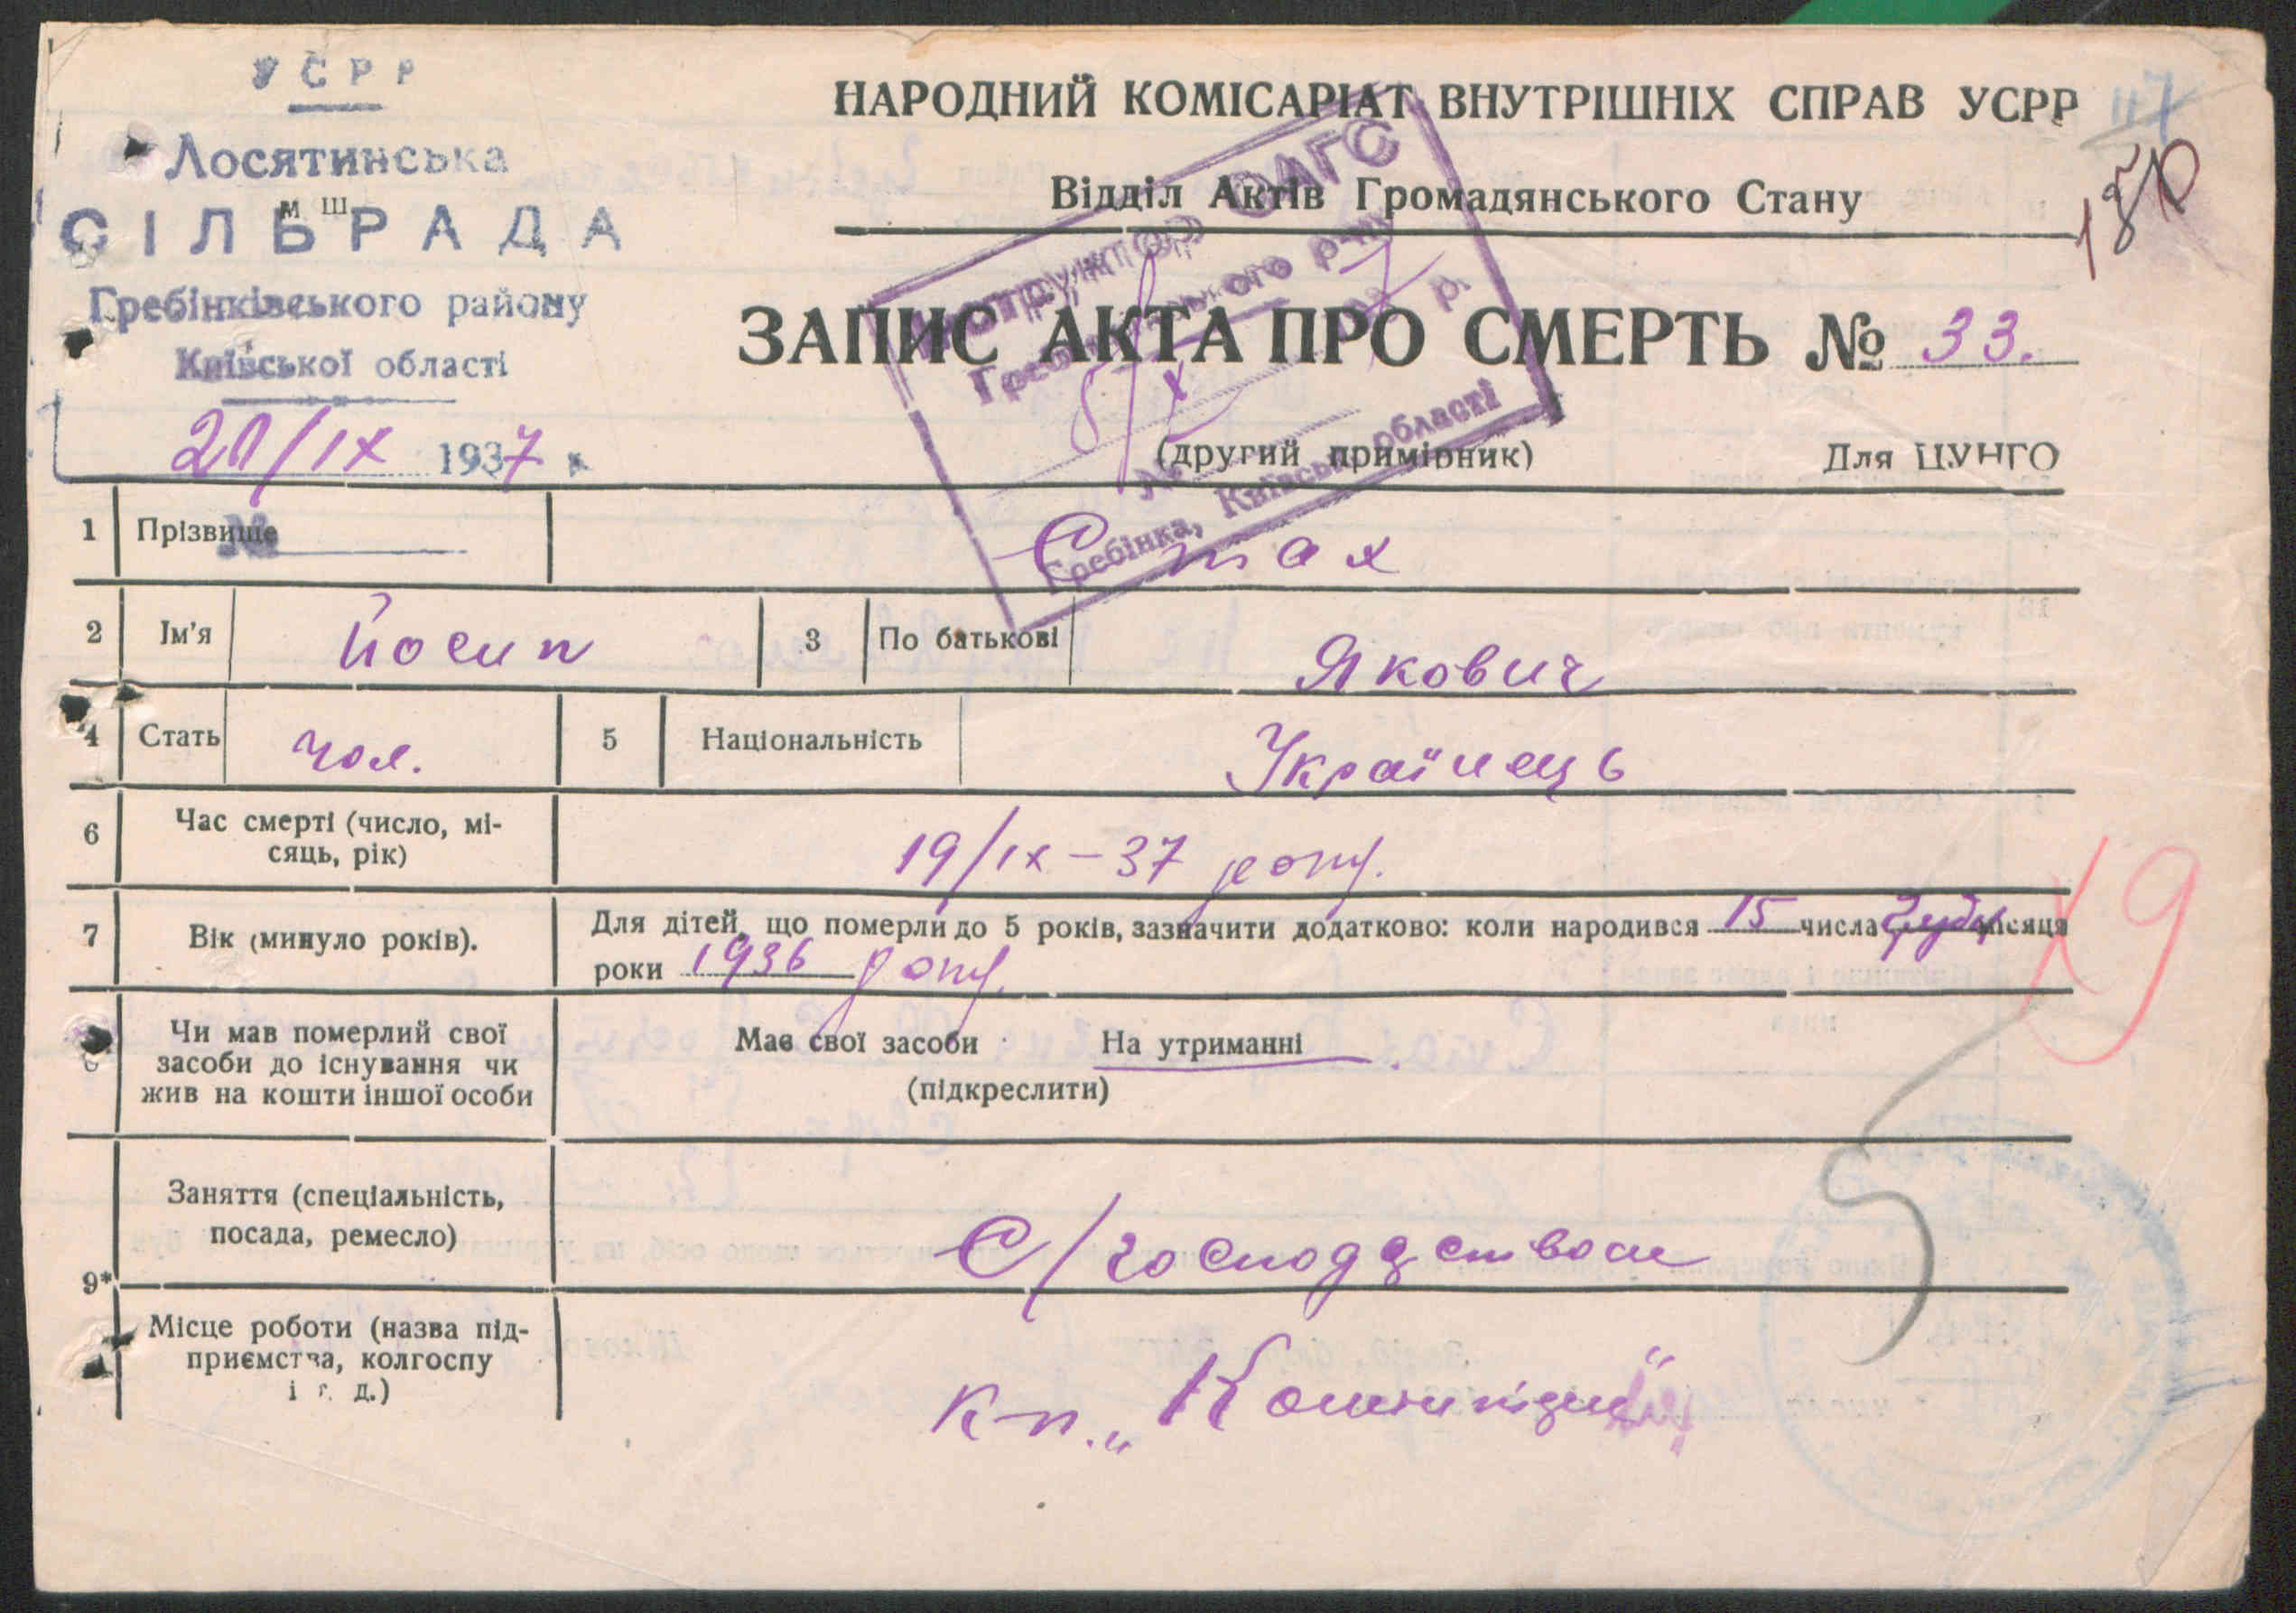 УСРР
Лосятинська
м Ш
СІЛЬРАДА
Гребінківського району
Київської області
20/IX 1937 р.
№
НАРОДНИЙ КОМІСАРІАТ ВНУТРІШНІХ СПРАВ УСРР
Відділ Актів Громадянського Стану
ЗАПИС АКТА ПРО СМЕРТЬ № 33.
(другий примірник) Для ЦУНГО
Інструктор ОАГС
Гребінківського р-ну
8/X 1937 р.
№
Гребінка, Київської області
1 Прізвище Стах
2 Ім'я Йосип 3 По батькові Якович
4 Стать чол. 5 Національність Українець
6 Час смерті (число, мі-
сяць, рік) 19/IX – 37 року.
7 Вік (минуло років). Для дітей, що померли до 5 років, зазначити додатково: коли народився 15 числа Груд. місяця
роки 1936 року.
19
8 Чи мав померлий свої
засоби до існування чи
жив на кошти іншої особи
Має свої засоби На утриманні
(підкреслити)
9* Заняття (спеціальність,
посада, ремесло) С/господством
Місце роботи (назва під-
приємства, колгоспу
і т. д.)
к-п. „